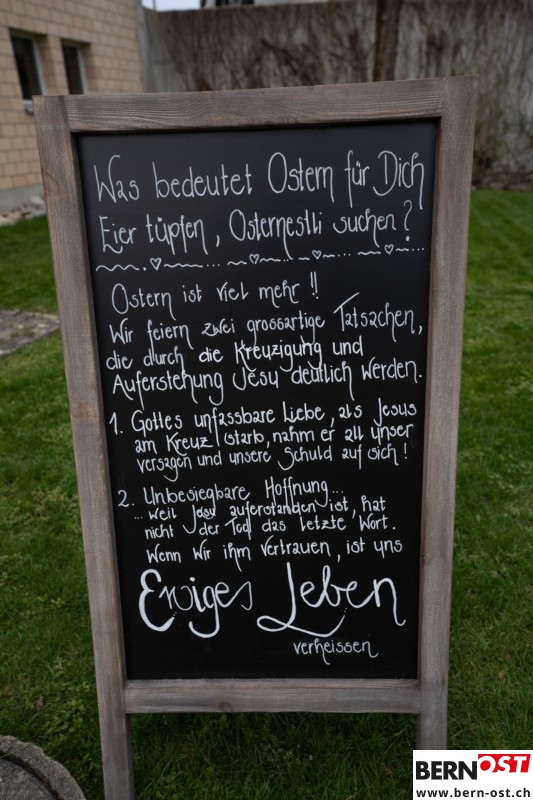 Was bedeutet Ostern für Dich
Eier tüpfen, Osternestli suchen?
Ostern ist viel mehr!!
Wir feiern zwei grossartige Tatsachen,
die durch die Kreuzigung und
Auferstehung Jesu deutlich werden.
1. Gottes unfassbare Liebe, als Jesus
am Kreuz starb, nahm er all unser
versagen und unsere Schuld auf sich!
2. Unbesiegbare Hoffnung...
...weil Jesu auferstanden ist, hat
nicht der Tod das letzte Wort.
Wenn wir ihm vertrauen, ist uns
Ewiges Leben
verheissen
BERNOST
www.bern-ost.ch